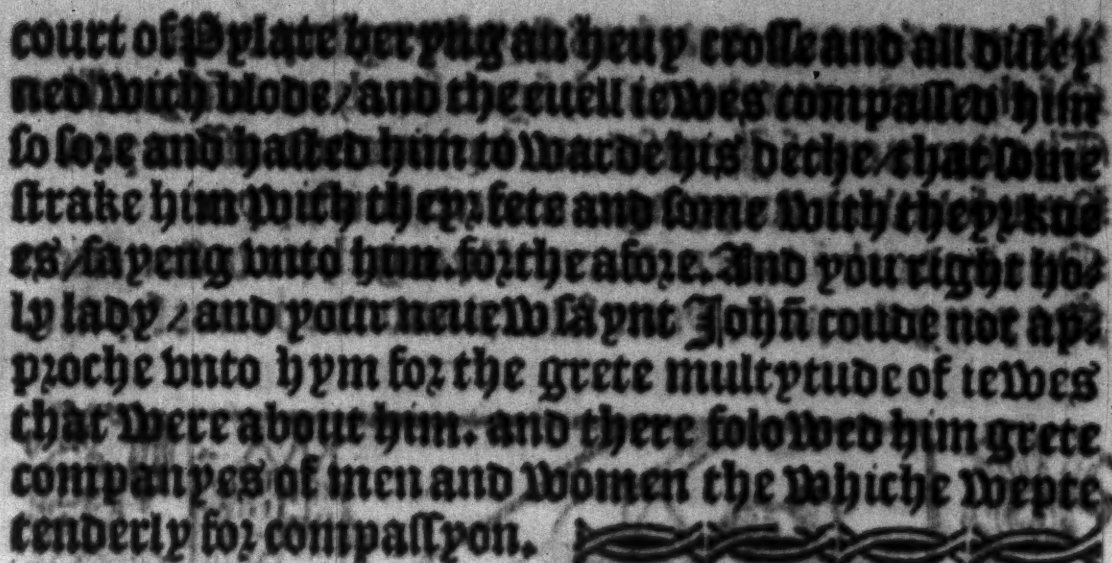 court of Pylate beryng an heuy crosse and all distey
ned with blode / and the euell iewes compassed him
so sore and hasted him to warde his dethe / that some
strake him with theyr fete and some with theyr kne
es / sayeng vnto him. for the afore. And you right ho⸗
ly lady / and your neuew saynt Johñ coude not ap⸗
proche vnto hym for the grete multytude of iewes
that were about him. and there folowed him grete
companyes of men and women the whiche wepte
tenderly for compassyon.